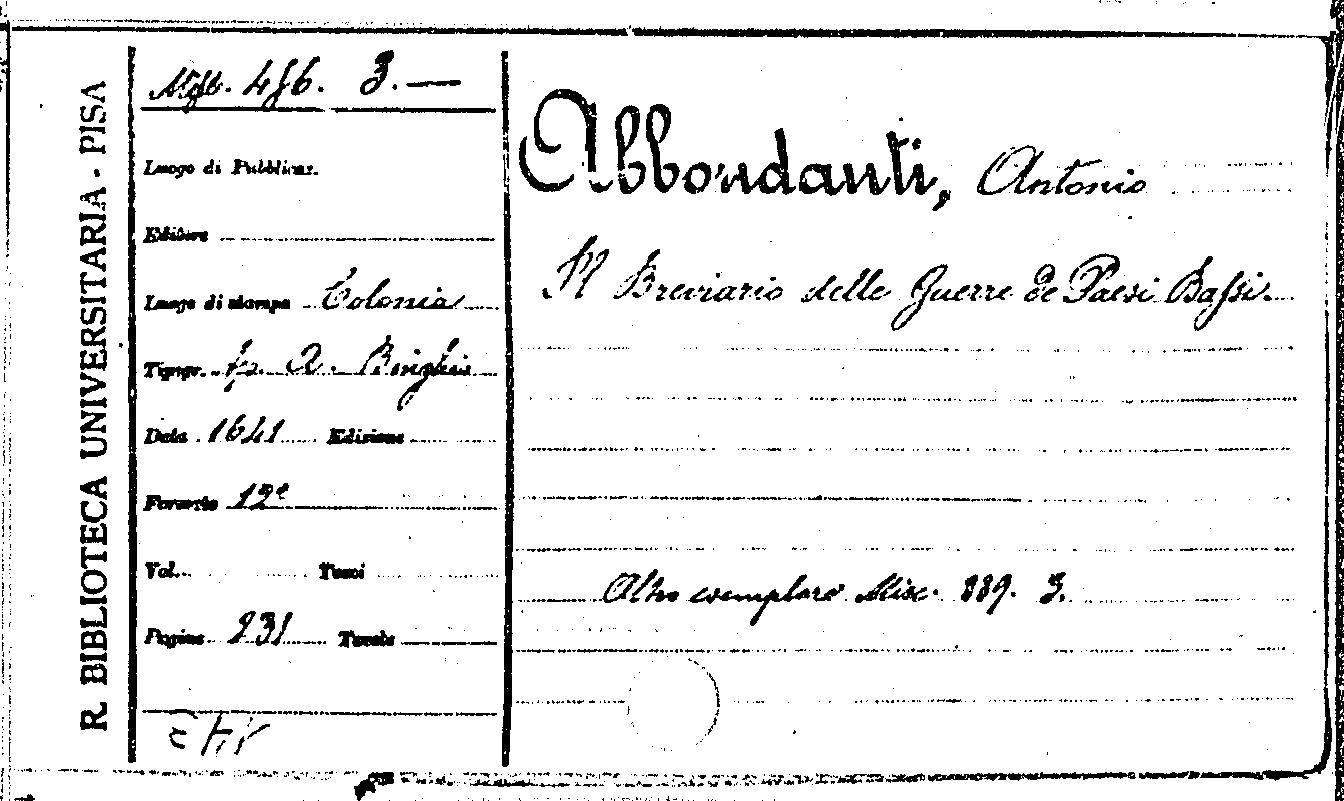 R. BIBLIOTECA UNIVERSITARIA - PISA
3. —
Luogo di Pubblicaz.
Editore
Luogo di stampa Colonia
Tipogr. A.
Data 1641 Edizione
Formato 12º
Vol. Tomi
Pagine 231 Tavole
Abbondanti, Antonio
Il Breviario delle Guerre de Paesi Bassi.
Altro esemplare Misc. 889. 3.